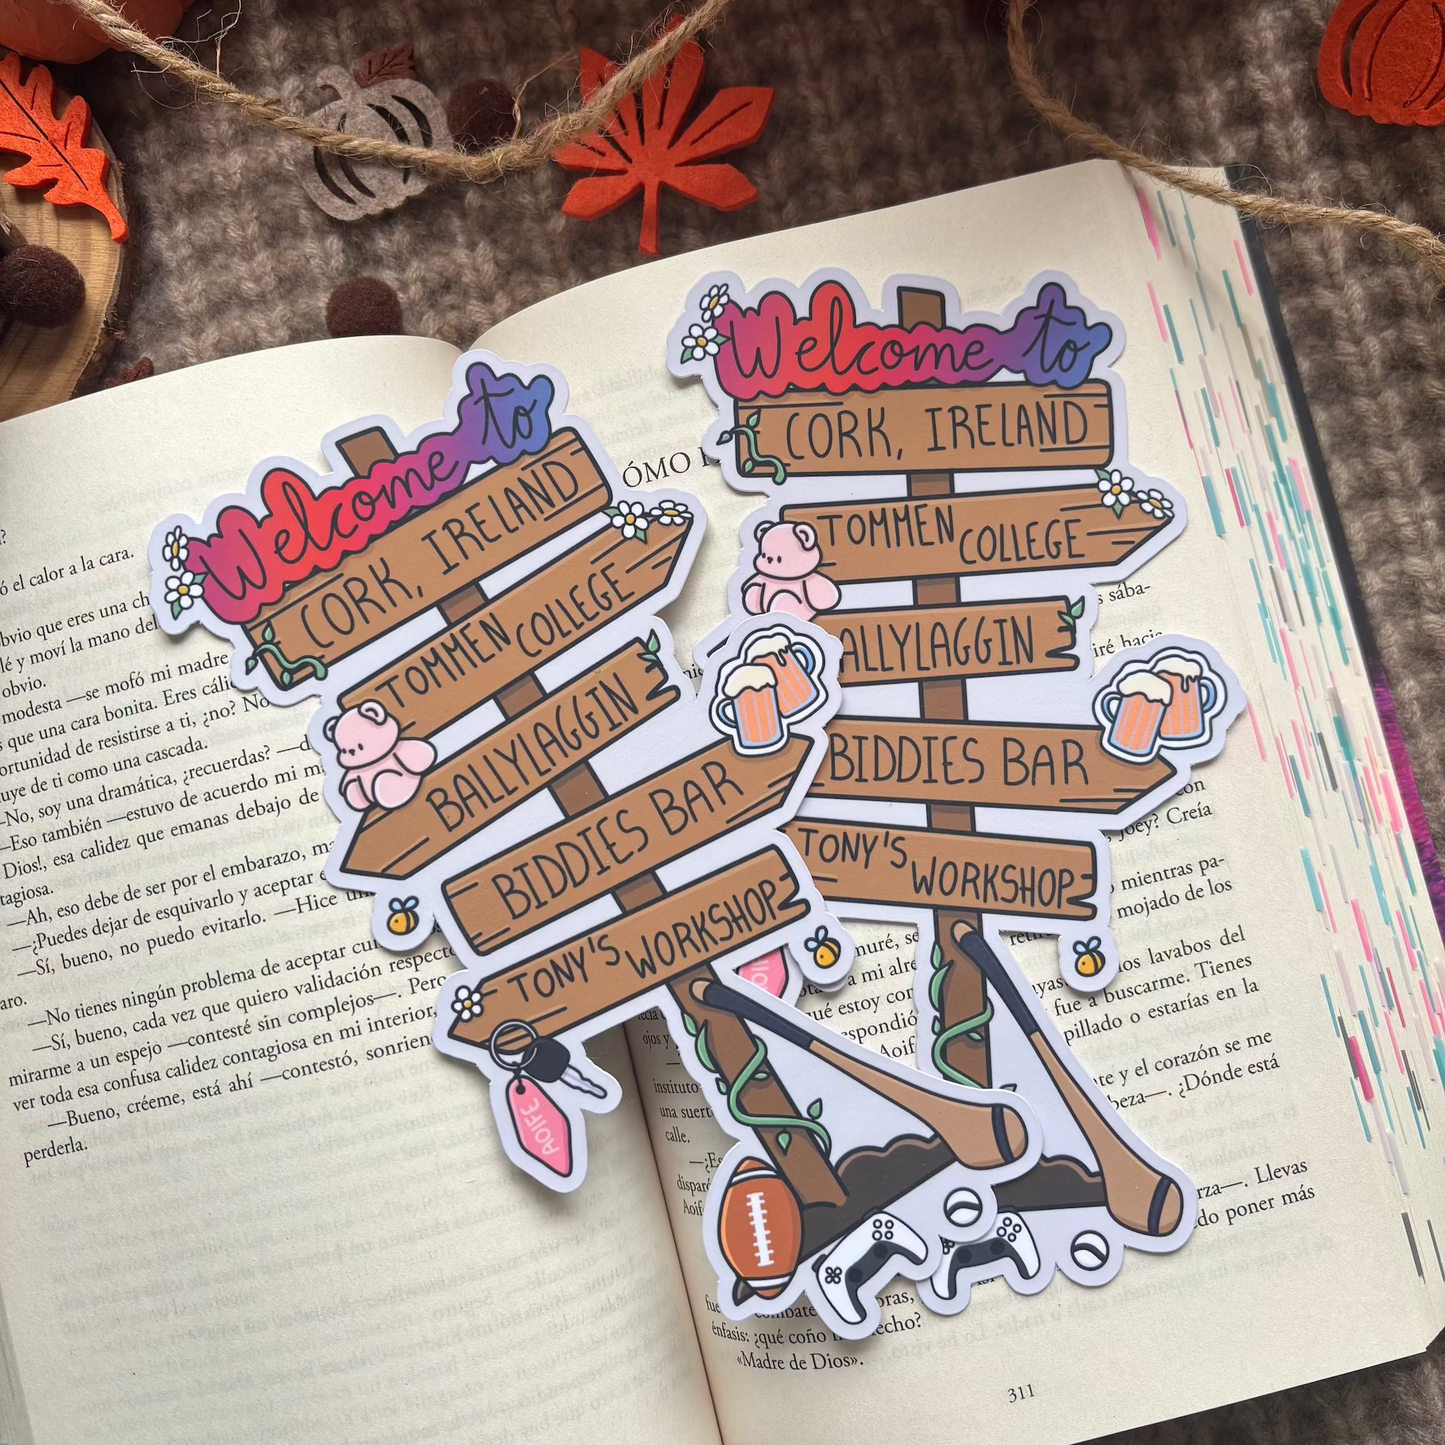 Welcome to
CORK, IRELAND
TOMMEN COLLEGE
BALLYLAGGIN
BIDDIES BAR
TONY'S WORKSHOP
AOIFE
Welcome to
CORK, IRELAND
TOMMEN COLLEGE
ALLYLAGGIN
BIDDIES BAR
TONY'S WORKSHOP
ÓMO
ó el calor a la cara.
bvio que eres una
lé y moví la mano del
obvio.
modesta —se mofó mi madre
que una cara bonita. Eres
ortunidad de resistirse a ti, ¿no? No
uye de ti como una cascada.
—No, soy una dramática, ¿recuerdas?
—Eso también —estuvo de acuerdo mi
Dios!, esa calidez que emanas debajo de
tagiosa.
—Ah, eso debe de ser por el embarazo,
—¿Puedes dejar de esquivarlo y aceptar
—Sí, bueno, no puedo evitarlo. —Hice
aro.
—No tienes ningún problema de aceptar
—Sí, bueno, cada vez que quiero validación
mirarme a un espejo —contesté sin complejos—. Pero
ver toda esa confusa calidez contagiosa en mi interior,
—Bueno, créeme, está ahí —contestó,
perderla.
sába-
iré hacia
con
Joey? Creía
mientras pa-
mojado de los
muré, se
los lavabos del
a mi
fue a buscarme. Tienes
qué estoy
pillado o estarías en la
respondió
Aoif
y el corazón se me
instituto
beza—. ¿Dónde está
una
calle.
—¿Es
rza—. Llevas
dispar
do poner más
Aoif
fue
combate
bras,
énfasis: ¿qué coño
echo?
«Madre de Dios».
311